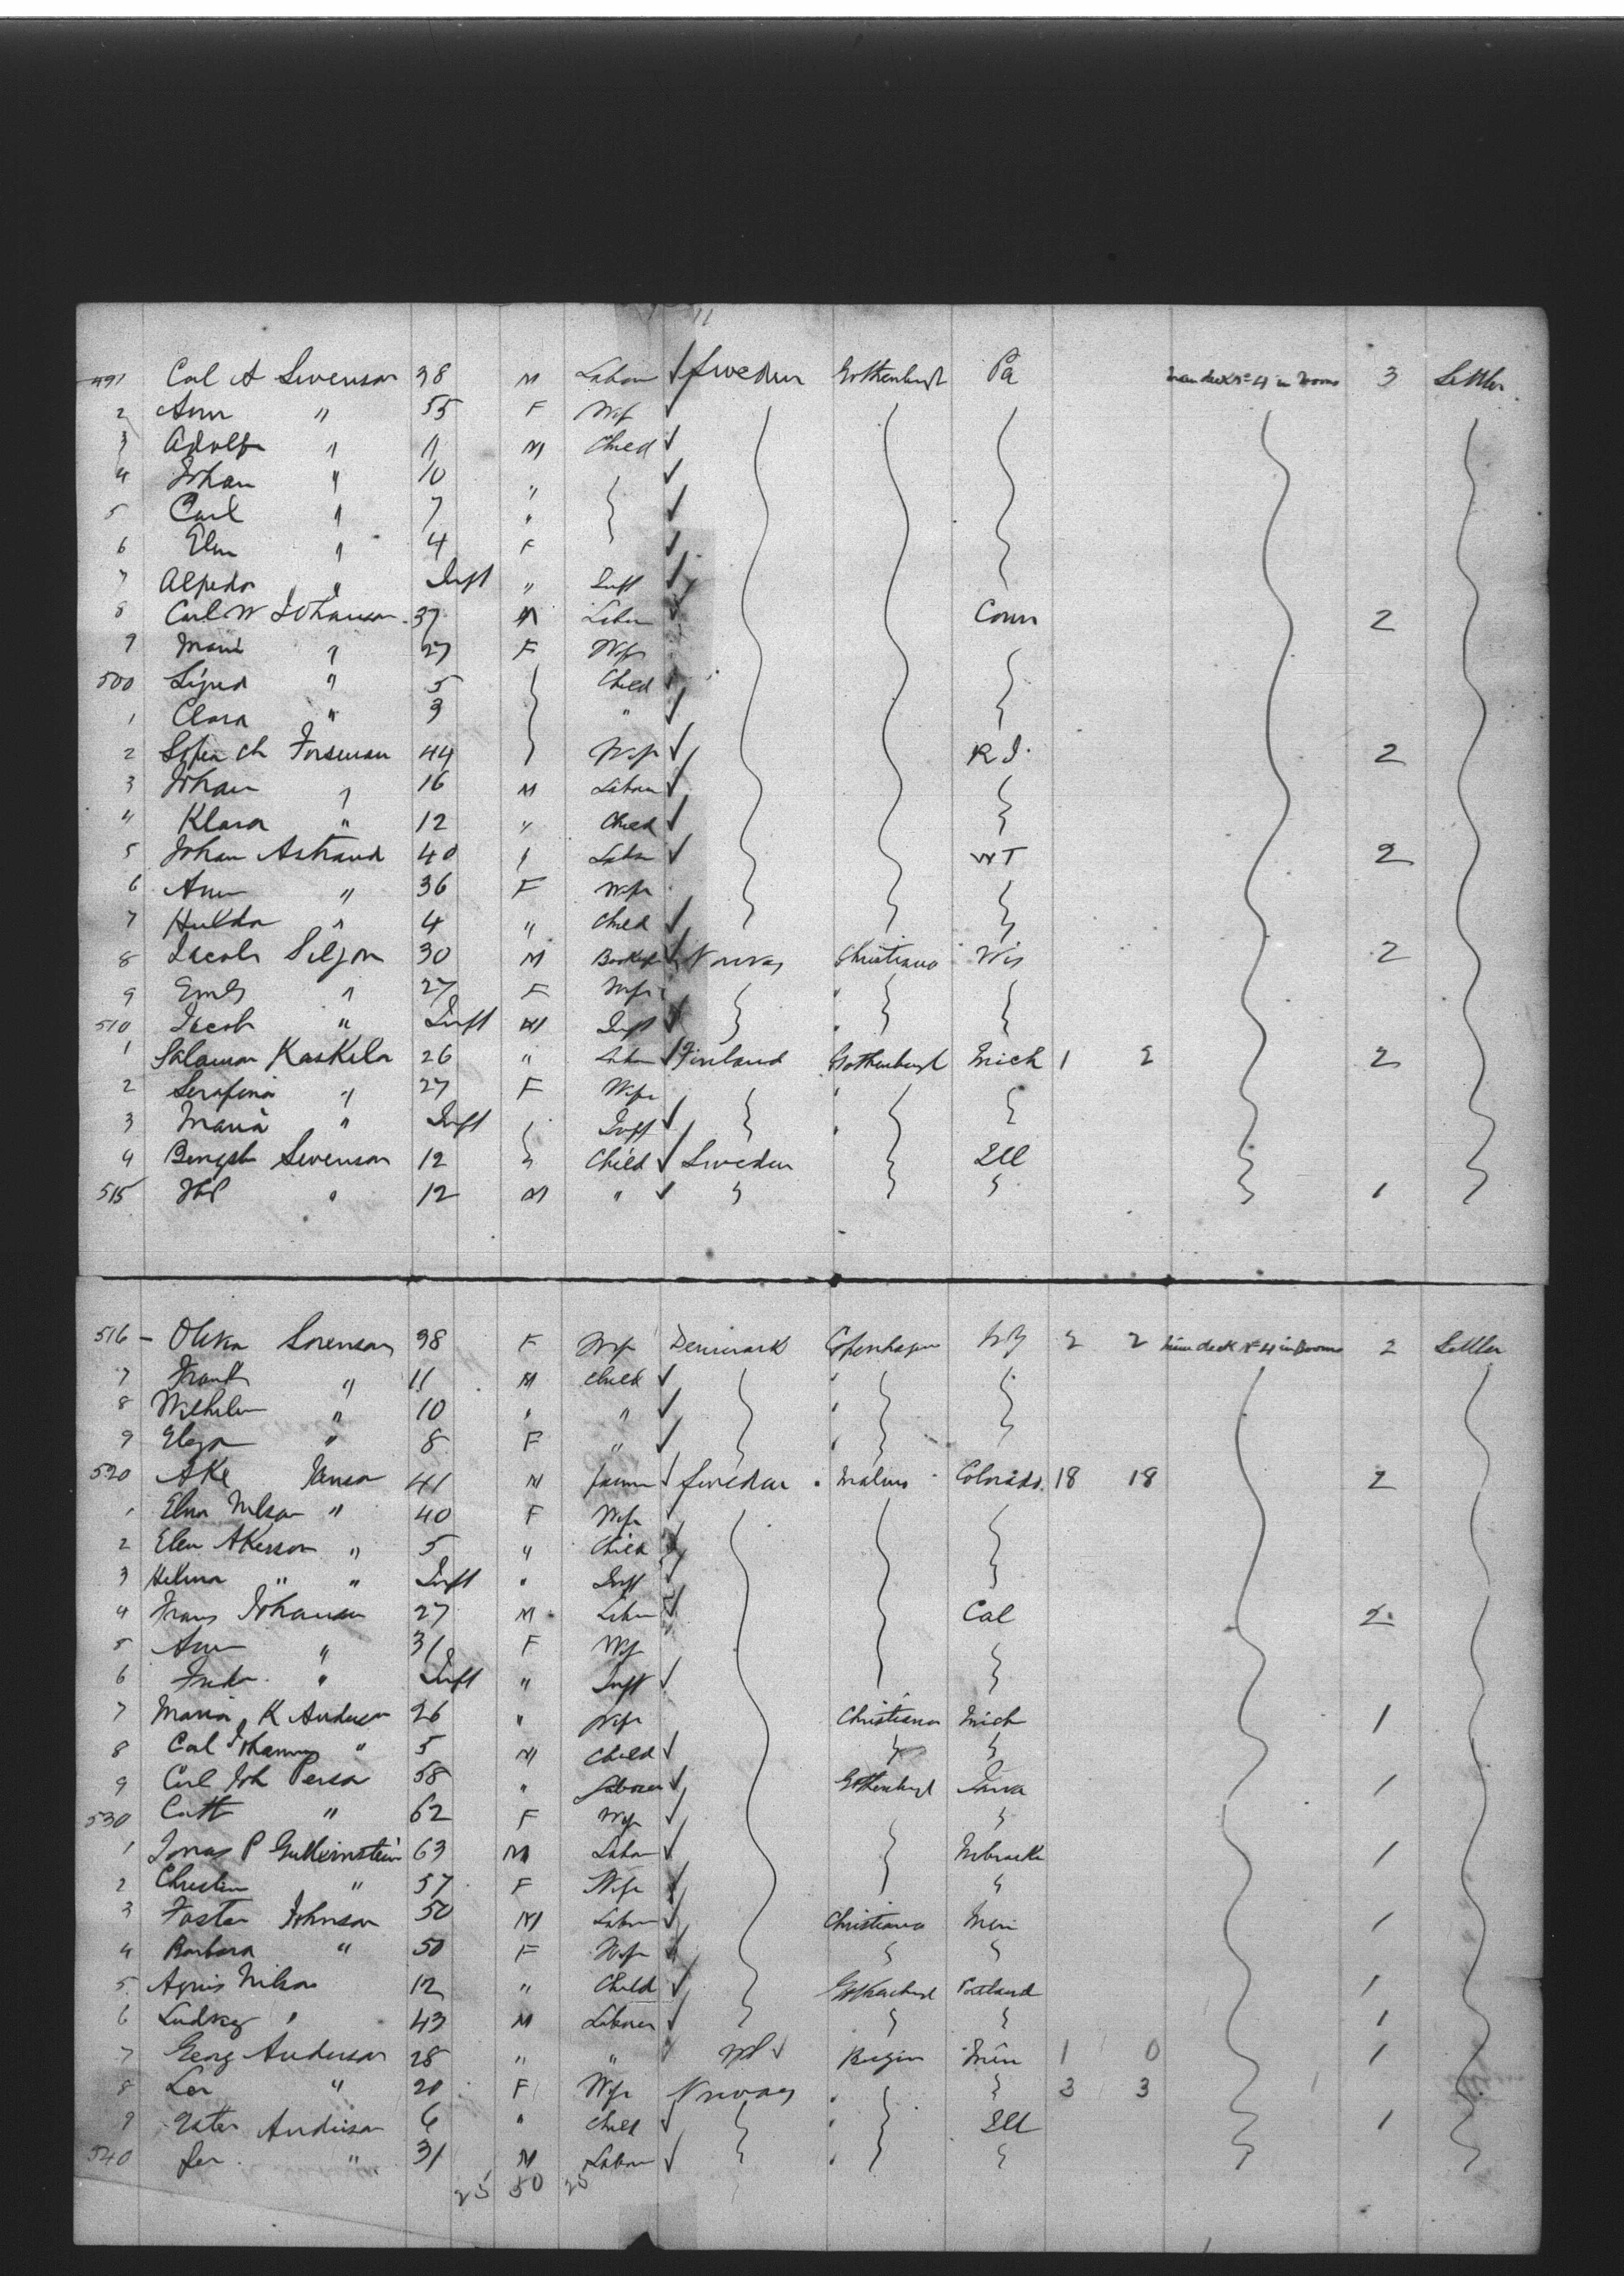 11
491 Carl A Swenson 38 M Labour Sweden Gothenburg Pa 3 Settler
2 Ann " 35 F Wife
3 Adolf " 11 M Child
4 Johan " 10 "
5 Carl " 7 "
6 Elin " 4 F
7 " Inft " Inft
8 Carl W Johanson 37 M Labor Conn 2
9 Maria " 27 F Wife
500 Sigrid " 5 Child
1 Clara " 3 "
2 44 Wife R I. 2
3 Johan " 16 M Labour
4 Klara " 12 " Child
5 Johan Astrand 40 " Labor 2
6 Ann " 36 F Wife
7 Hulda " 4 " Child
8 Jacob 30 M Norway Christiana Wis 2
9 " 27 F Wife
510 Jacob " Inft M Inft
1 Salamon Kaskela 26 " Labor Finland Gothenburg Mich 1 2 2
2 Serafina " 27 F Wife
3 Maria " Inft Inft
4 Swenson 12 Child Sweden Ill
515 " 12 M " 1
516 - Sorenson 38 F Wife Denmark Copenhagen 2 2 2 Settler
7 Frank " 11 M Child
8 Wilhelm " 10 " "
9 " 8 F "
520 Ake 41 M Sweden Malmo Colorado 18 18 2
1 Elna Nelson " 40 F Wife
2 Elen Akerson " 5 " Child
3 Helma " " Inft " Inft
4 Frans Johanson 27 M Labor Cal 2
5 Ann " 31 F Wife
6 " Inft " Inft
7 Maria K Anderson 26 " Wife Christiana Mich 1
8 Carl Johannes " 5 M Child
9 Carl Joh Person 58 " Laborer Gothenburg 1
530 " 62 F Wife
1 Jonas P 63 M Labor Nebraska 1
2 Christin " 57 F Wife "
3 Johnson 50 M Labor Christiana 1
4 Barbara " 50 F Wife
5 Agnes Nilson 12 " Child Gothenburg Portland 1
6 " 43 M Laborer 1
7 Georg Anderson 28 " " Bergen Min 1 0 1
8 " 20 F Wife Norway 3 3
9 Anderson 6 " Child Ill 1
540 " 31 M Labor
25 50 25